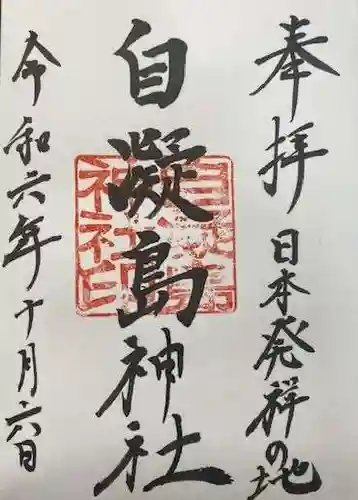 奉拝
日本発祥の地
自凝島神社
令和六年十月六日